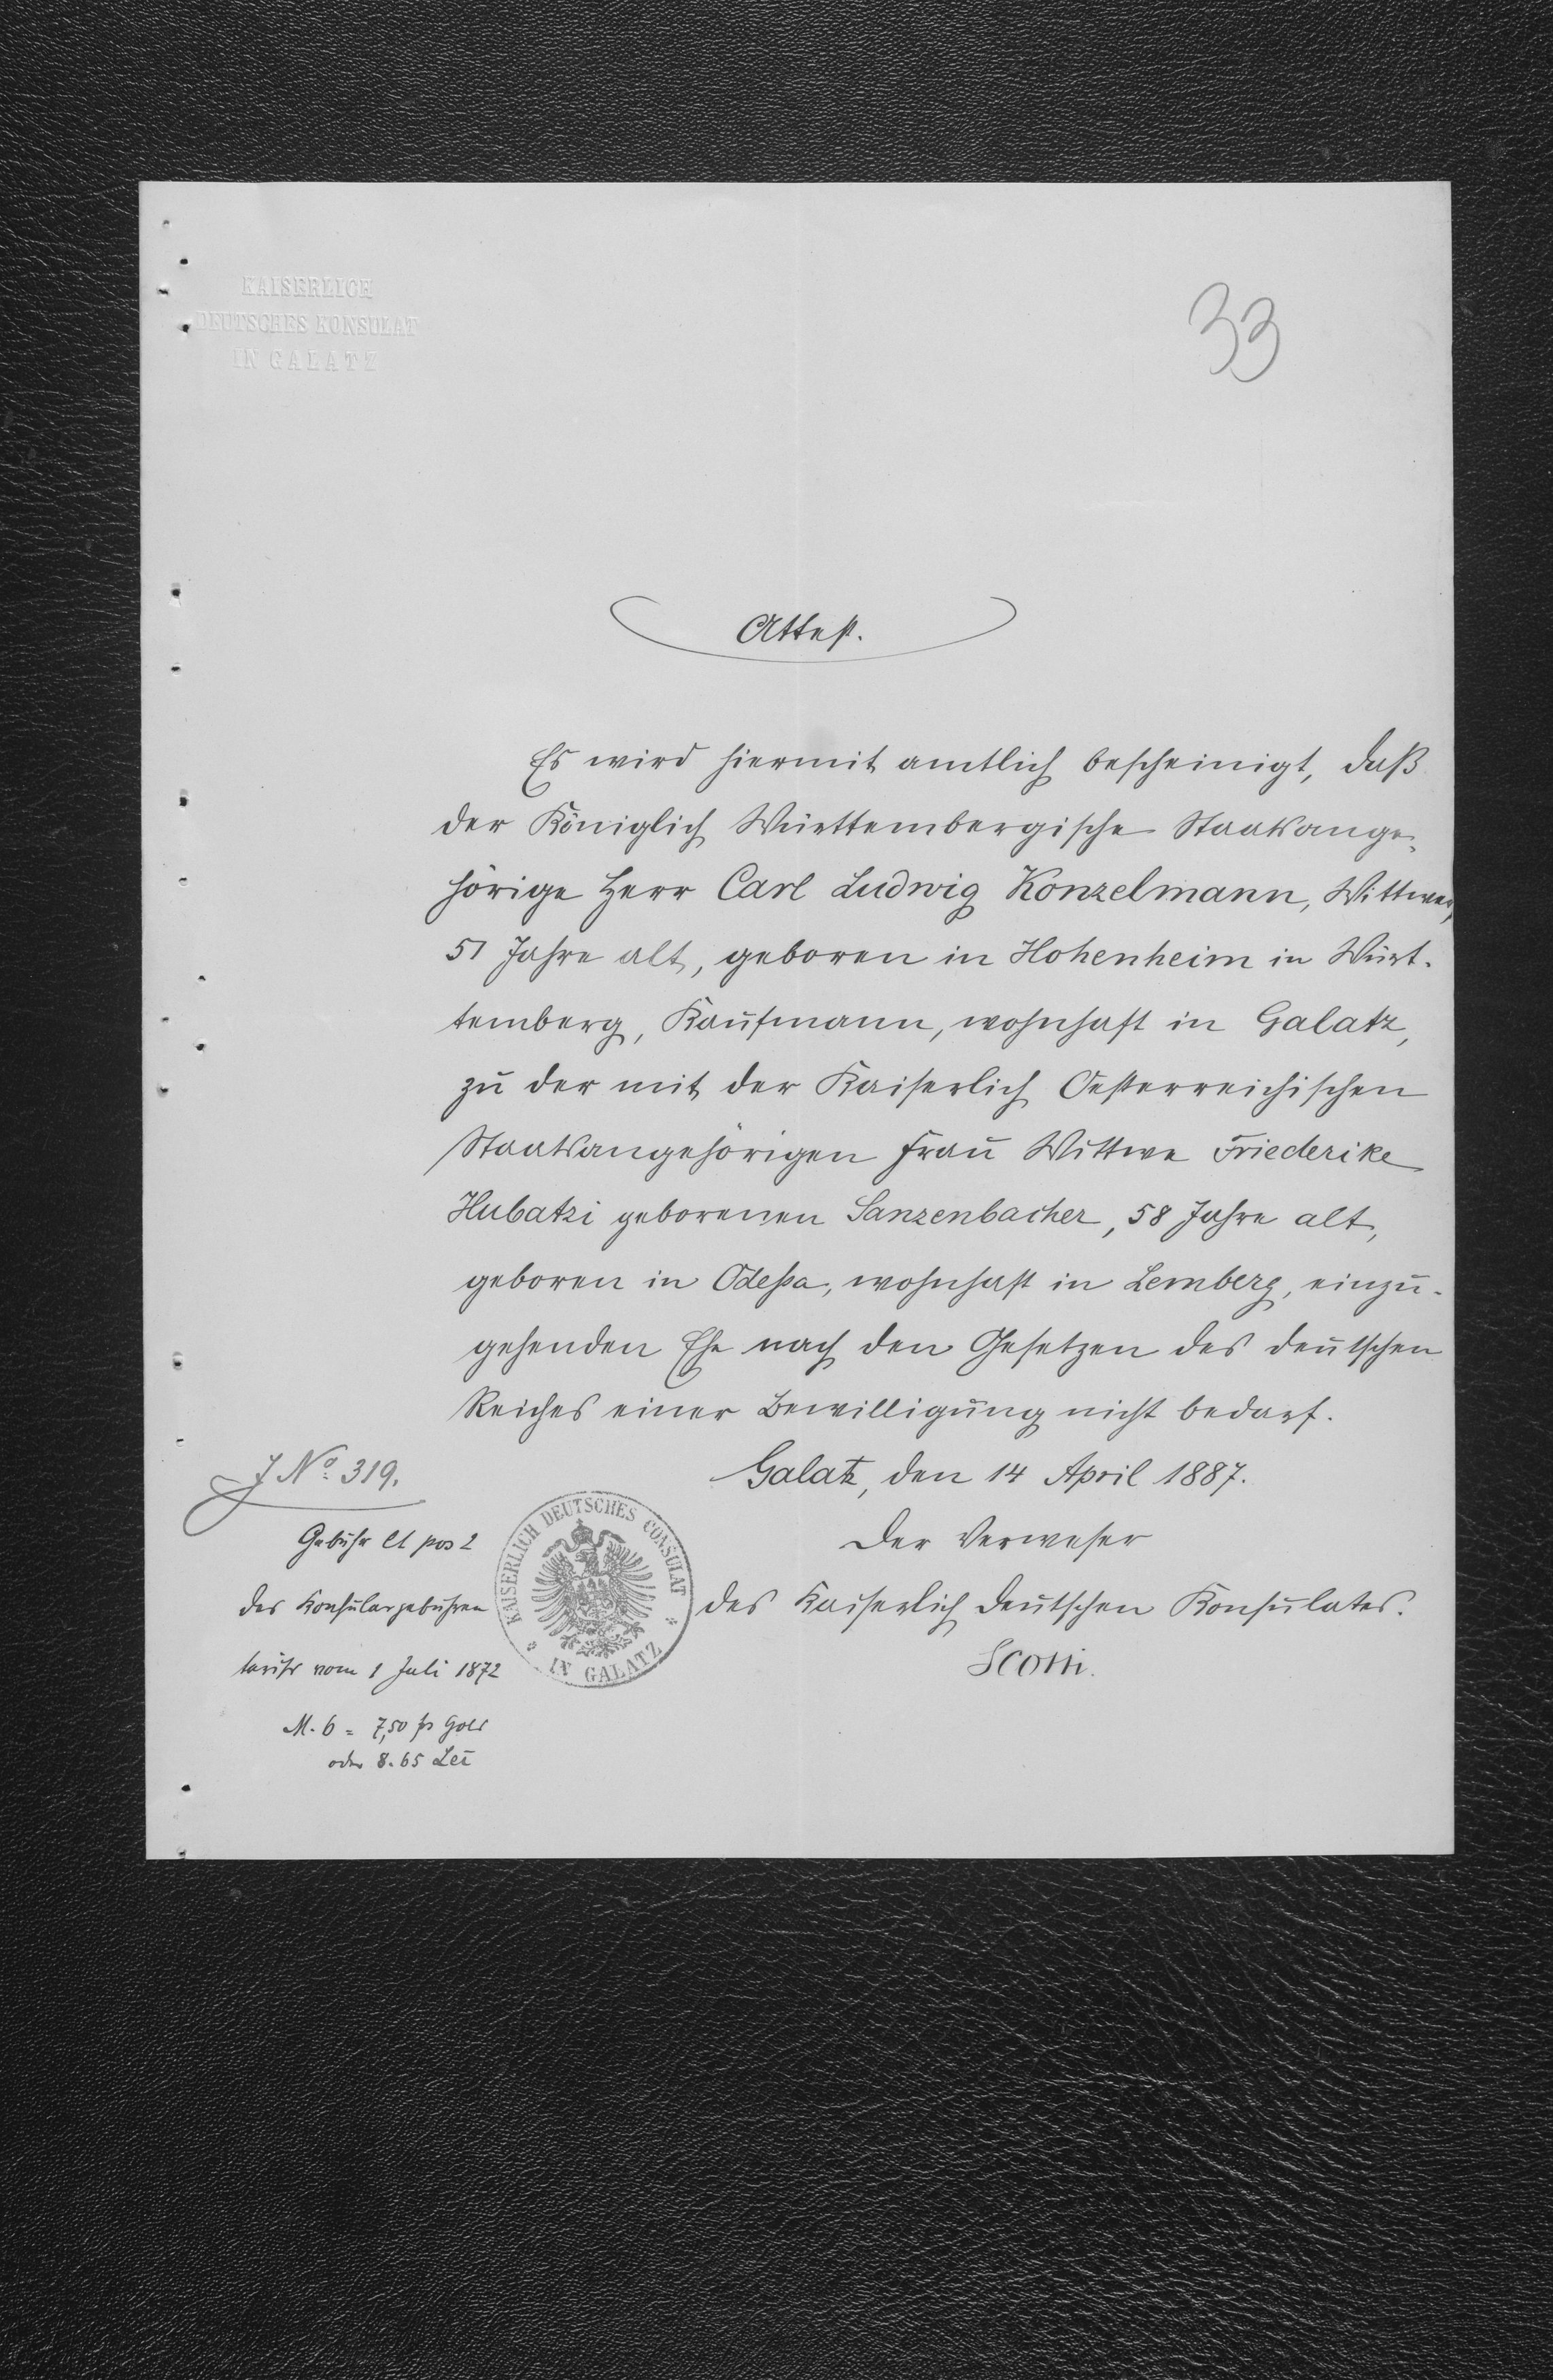 KAISERLICH
DEUTSCHES KONSULAT
IN GALATZ
33
Attest.
Es wird hiermit amtlich bescheinigt, daß
der Königlich Württembergische Staatsange-
hörige Herr Carl Ludwig Konzelmann, Wittwer,
51 Jahre alt, geboren in Hohenheim in Würt-
temberg, Kaufmann, wohnhaft in Galatz,
zu der mit der Kaiserlich Oesterreichischen
Staatsangehörigen Frau Wittwe Friederike
Hubatzi geborenen Sanzenbacher, 58 Jahre alt,
geboren in Odeßa, wohnhaft in Lemberg, einzu-
gehenden Ehe nach den Gesetzen des deutschen
Reiches einer Bewilligung nicht bedarf.
Galatz, den 14 April 1887.
Der Verweser
des Kaiserlich Deutschen Konsulates.
J No. 319.
Gebühr lt pos 2
des Konsulargebühren
tarifs vom 1 Juli 1872
M. 6 = 7,50 fs Gold
oder 8.65 Lei
KAISERLICH DEUTSCHES CONSULAT
IN GALATZ